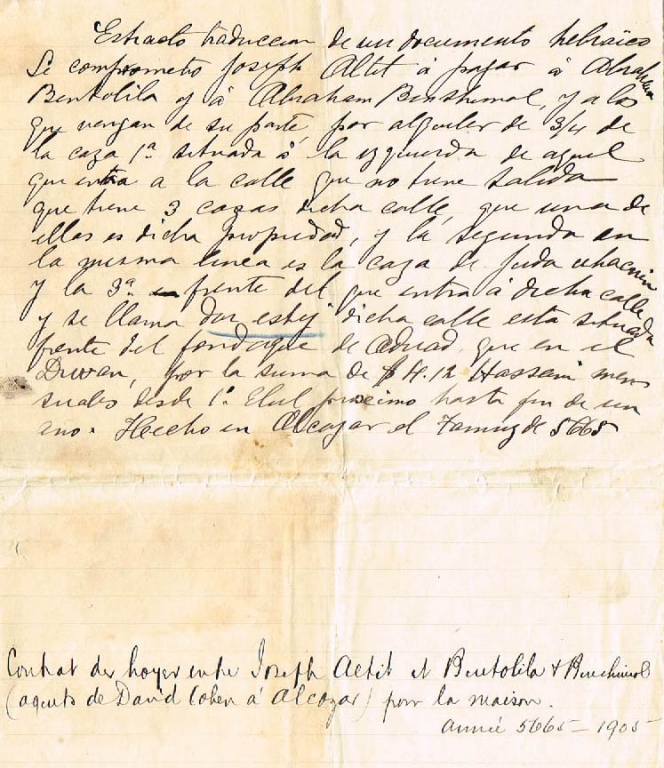 Estracto traduccion de un documento hebraico
Se comprometio Joseph Altit á pagar á Abraham
Bentolila y á Abraham Benshimol, y a los
que vengan de su parte, por alquiler de 3/4 de
la caza 1ª situada á la izquierda de aquel
que entra a la calle que no tiene salida
que tiene 3 cazas dicha calle, que una de
ellas es dicha propiedad, y la segunda en
la misma linea es la caza de Juda
y la 3ª en frente del que entra á dicha calle
y se llama dicha calle esta situada
frente del fondaque de que en el
Diwan, por la suma de 12 Hassani men
suales desde 1º Elul proximo hasta fin de un
ano. Hecho en Alcazar el Tamuz de 5665
Contrat de loyer entre Joseph Altit et Bentolila & Benchimol
(agents de David Cohen á Alcazar) pour la maison.
Année 5665 - 1905